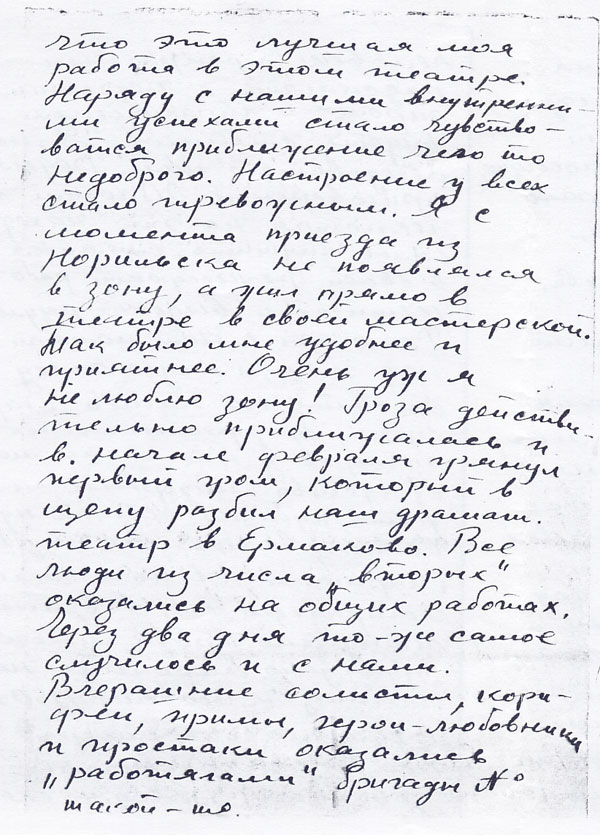 что это лучшая моя
работа в этом театре.
Наряду с нашими внутренни-
ми успехами стало чувство-
ваться приближение чего то
недоброго. Настроение у всех
стало тревожным. Я с
момента приезда из
Норильска не появлялся
в зону, а жил прямо в
театре в своей мастерской.
Так было мне удобнее и
приятнее. Очень уж я
не люблю зону! Гроза действи-
тельно приближалась и
в начале февраля грянул
первый гром, который в
щепу разбил наш драмат.
театр в Ермаково. Все
люди из числа „вторых"
оказались на общих работах.
Через два дня то-же самое
случилось и с нами.
Вчерашние солисты, кори-
феи, примы, герои-любовники
и простаки оказались
„работягами" бригады №
такой-то.